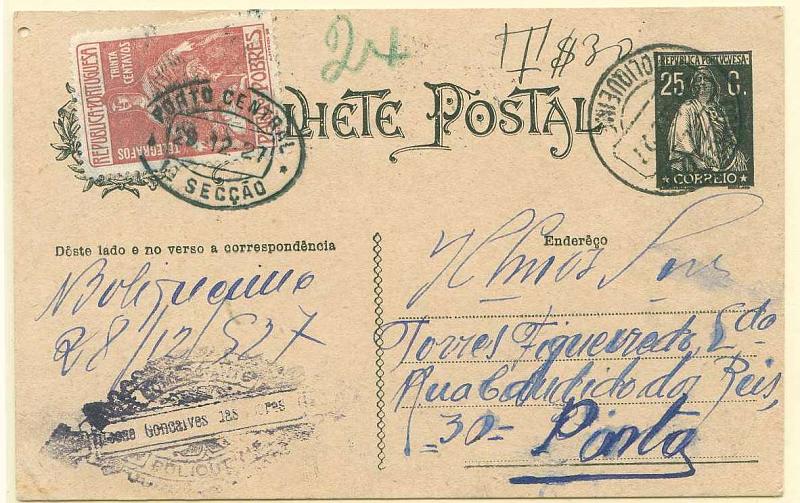 REPUBLICA PORTUGUESA
TRINTA CENTAVOS
TELEGRAFOS
POBRES
PORTO CENTRAL
29.12.27
SECÇÃO
24
T/ $30
BILHETE POSTAL
REPUBLICA PORTUGUESA
25 C.
CORREIO
BOLIQUEIME
Dêste lado e no verso a correspondência
Endereço
Boliqueime
28/12/927
Gonçalves das
BOLIQUEIME
Ilmos Snrs
Torres Figueiredo L.da
Rua Candido dos Reis,
-30-
Porto